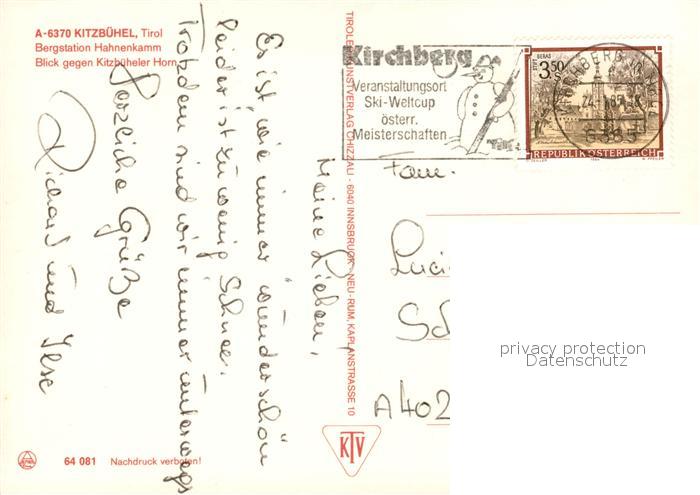 A-6370 KITZBÜHEL, Tirol
Bergstation Hahnenkamm
Blick gegen Kitzbüheler Horn
Meine Lieben,
Es ist wie immer wunderschön
leider ist zu wenig Schnee.
Trotzdem sind wir immer unterwegs
Herzliche Grüße
Richard und Ilse
64 081 Nachdruck verboten!
TIROLER KUNSTVERLAG CHIZZALI - 6040 INNSBRUCK - NEU-RUM, KAPLANSTRASSE 10
KTV
Kirchberg
Veranstaltungsort
Ski-Weltcup
österr.
Meisterschaften
STIFT GERAS
3.50
S
REPUBLIK ÖSTERREICH
1984
Fam.
Luci
Sc
A 402
privacy protection
Datenschutz